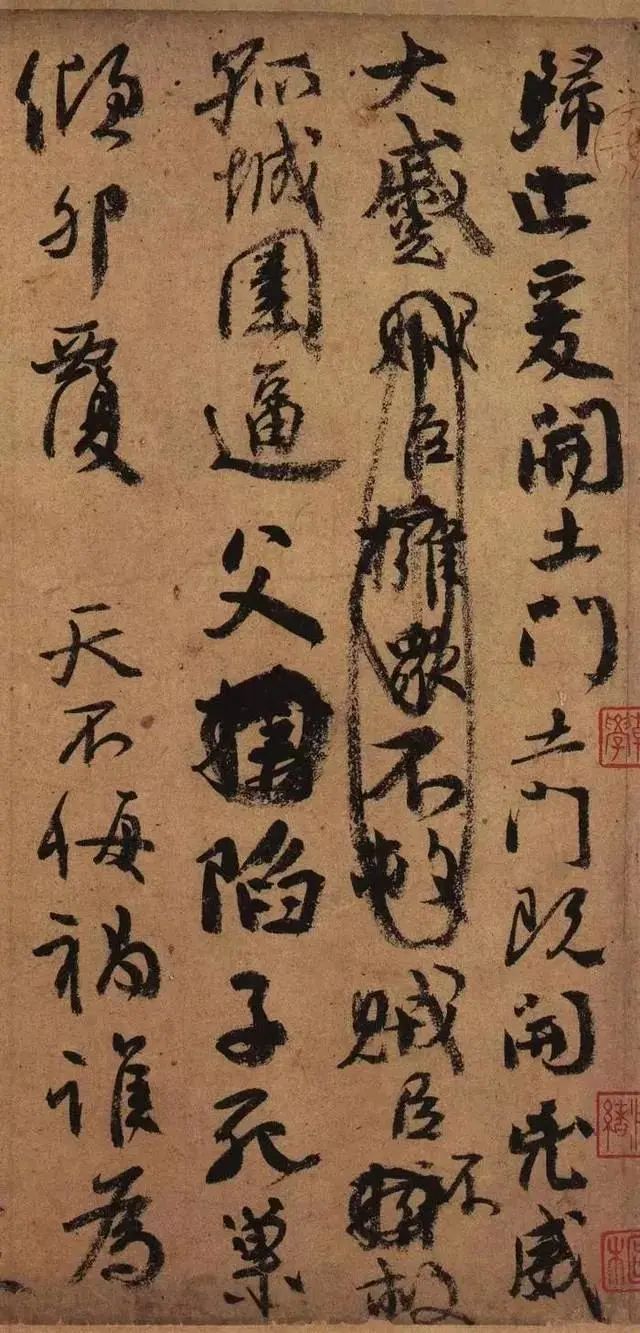 歸止爰開土門土門既開兇威
大蹙賊臣擁衆不救賊臣不救
孤城圍逼父陷子死巢
傾卵覆 天不悔禍誰為